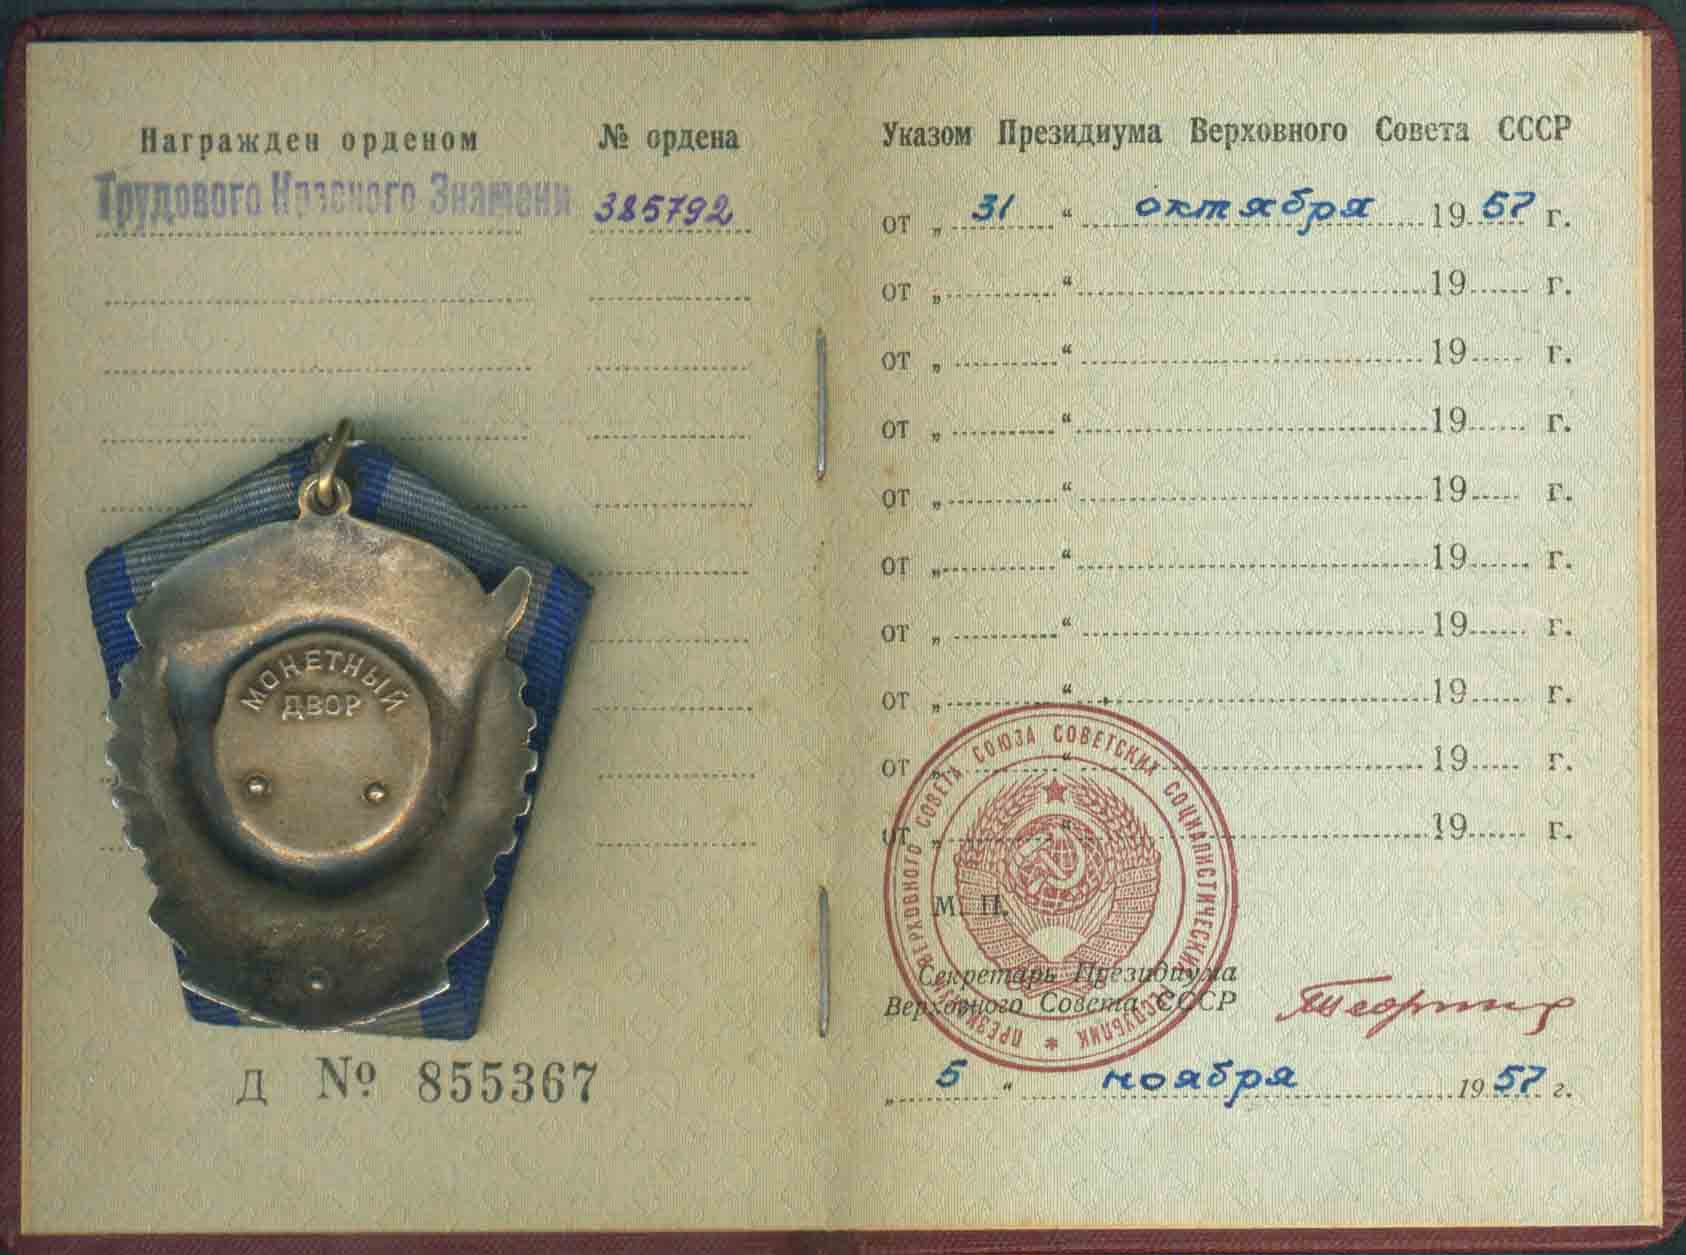 Награжден орденом № ордена
Трудового Красного Знамени 385792
Указом Президиума Верховного Совета СССР
от „ 31 “ октября 1957 г.
от „ “ 19 г.
от „ “ 19 г.
от „ “ 19 г.
от „ “ 19 г.
от „ “ 19 г.
от „ “ 19 г.
от „ “ 19 г.
от „ “ 19 г.
от „ “ 19 г.
МОНЕТНЫЙ
ДВОР
Д № 855367
ПРЕЗИДИУМ ВЕРХОВНОГО СОВЕТА СОЮЗА СОВЕТСКИХ СОЦИАЛИСТИЧЕСКИХ РЕСПУБЛИК *
М. П.
Секретарь Президиума
Верховного Совета СССР
„ 5 “ ноября 1957 г.